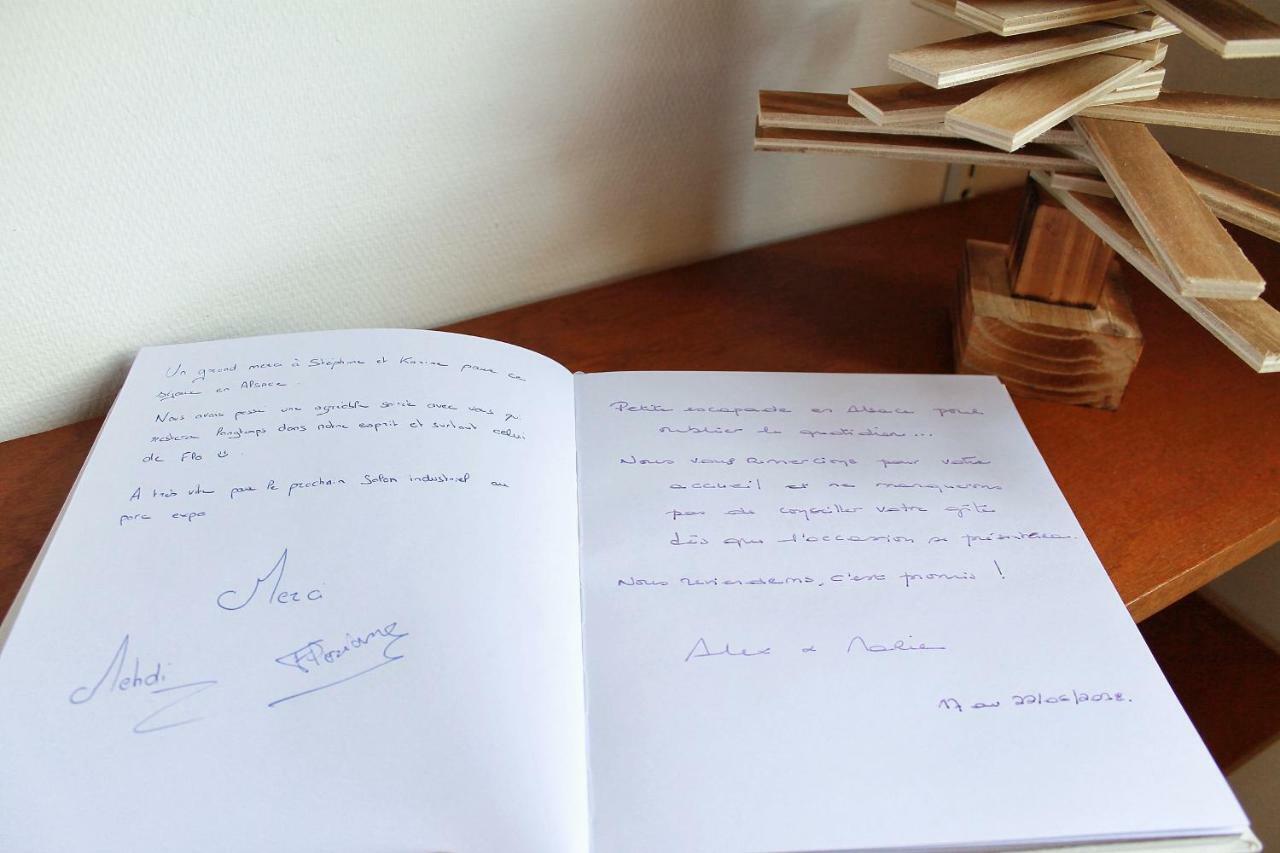 Un grand merci à Stéphane et Karine pour ce
séjour en Alsace.
Nous avons passé une agréable soirée avec vous qui
restera longtemps dans notre esprit et surtout celui
de Flo ☺.
A très vite pour le prochain Salon industriel au
parc expo
Merci
Mehdi Floriane
Petite escapade en Alsace pour
oublier le quotidien...
Nous vous remercions pour votre
accueil et ne manquerons
pas de conseiller votre gîte
dès que l'occasion se présentera.
Nous reviendrons, c'est promis !
Alex & Marie
17 au 22/06/2018.